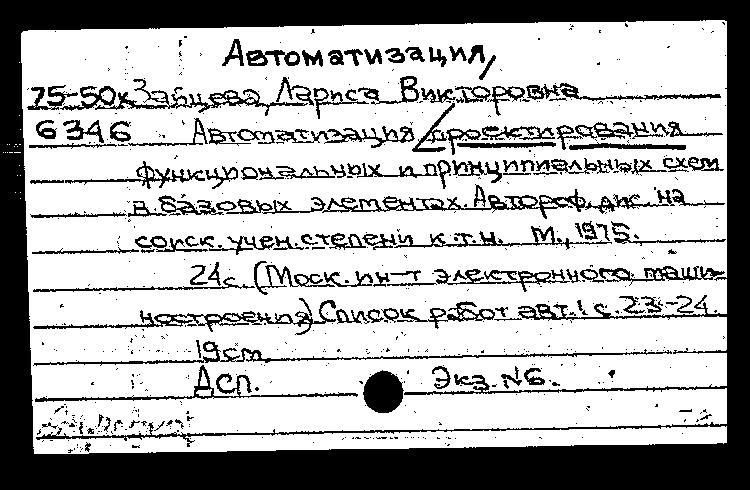 Автоматизация,
75-50к Зайцева, Лариса Викторовна
6346 Автоматизация проектирования
функциональных и принципиальных схем
в базовых элементах. Автореф. дис. на
соиск. учен. степени к.т.н. М., 1975.
24с. (Моск. ин-т электронного маши-
ностроения) Список работ авт.: с. 23-24.
19см.
Дсп. Экз. №6.